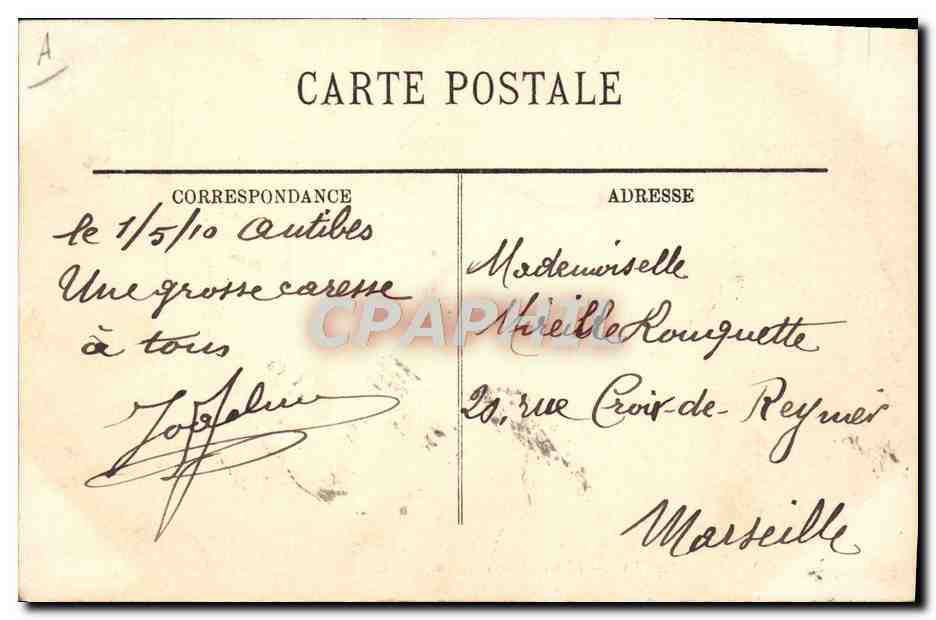 A
CARTE POSTALE
CORRESPONDANCE
le 1/5/10 Antibes
Une grosse caresse
à tous
ADRESSE
Mademoiselle
Mireille Rouquette
20, rue Croix-de-Reynier
Marseille
CPAPHIL